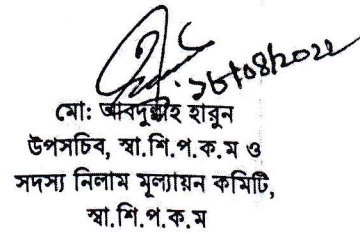 মো: আবদুল্লাহ হারুন
উপসচিব, স্বা.শি.প.ক.ম ও
সদস্য নিলাম মূল্যায়ন কমিটি,
স্বা.শি.প.ক.ম